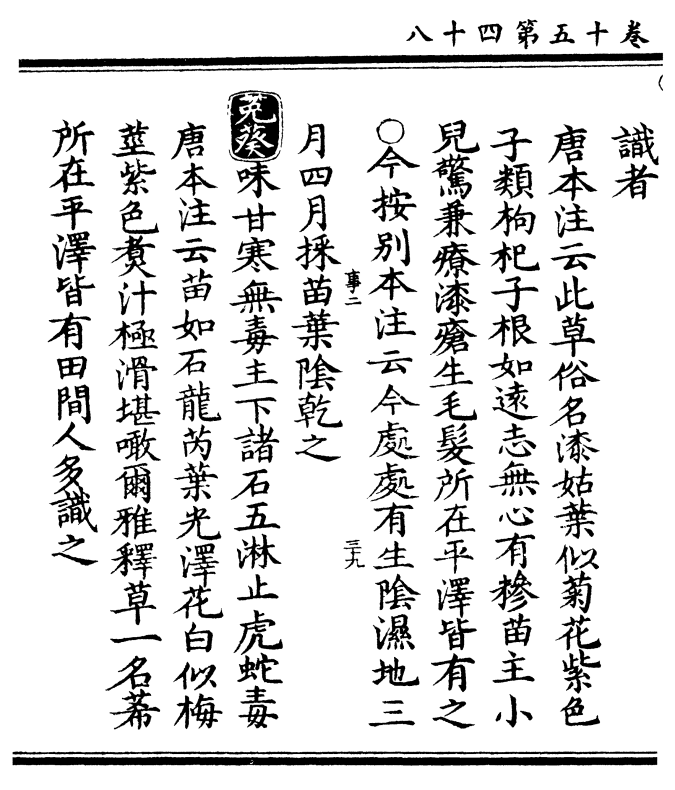 卷十五第四十八
識者
唐本注云此草俗名漆姑葉似菊花紫色
子類枸杞子根如遠志無心有糝苗主小
兒驚兼療漆瘡生毛髮所在平澤皆有之
○今按别本注云今處處有生陰濕地三
月四月採苗葉陰乾之
事二
三十九
菟葵味甘寒無毒主下諸石五淋止虎蛇毒
唐本注云苗如石龍芮葉光澤花白似梅
莖紫色煑汁極滑堪噉爾雅釋草一名莃
所在平澤皆有田間人多識之